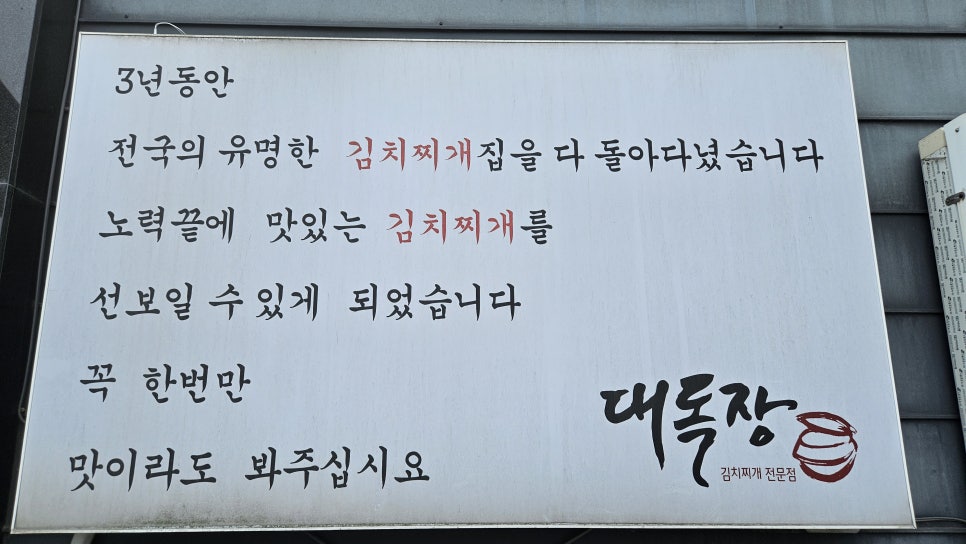 3년동안
전국의 유명한 김치찌개집을 다 돌아다녔습니다
노력끝에 맛있는 김치찌개를
선보일 수 있게 되었습니다
꼭 한번만
맛이라도 봐주십시요
대독장
김치찌개 전문점